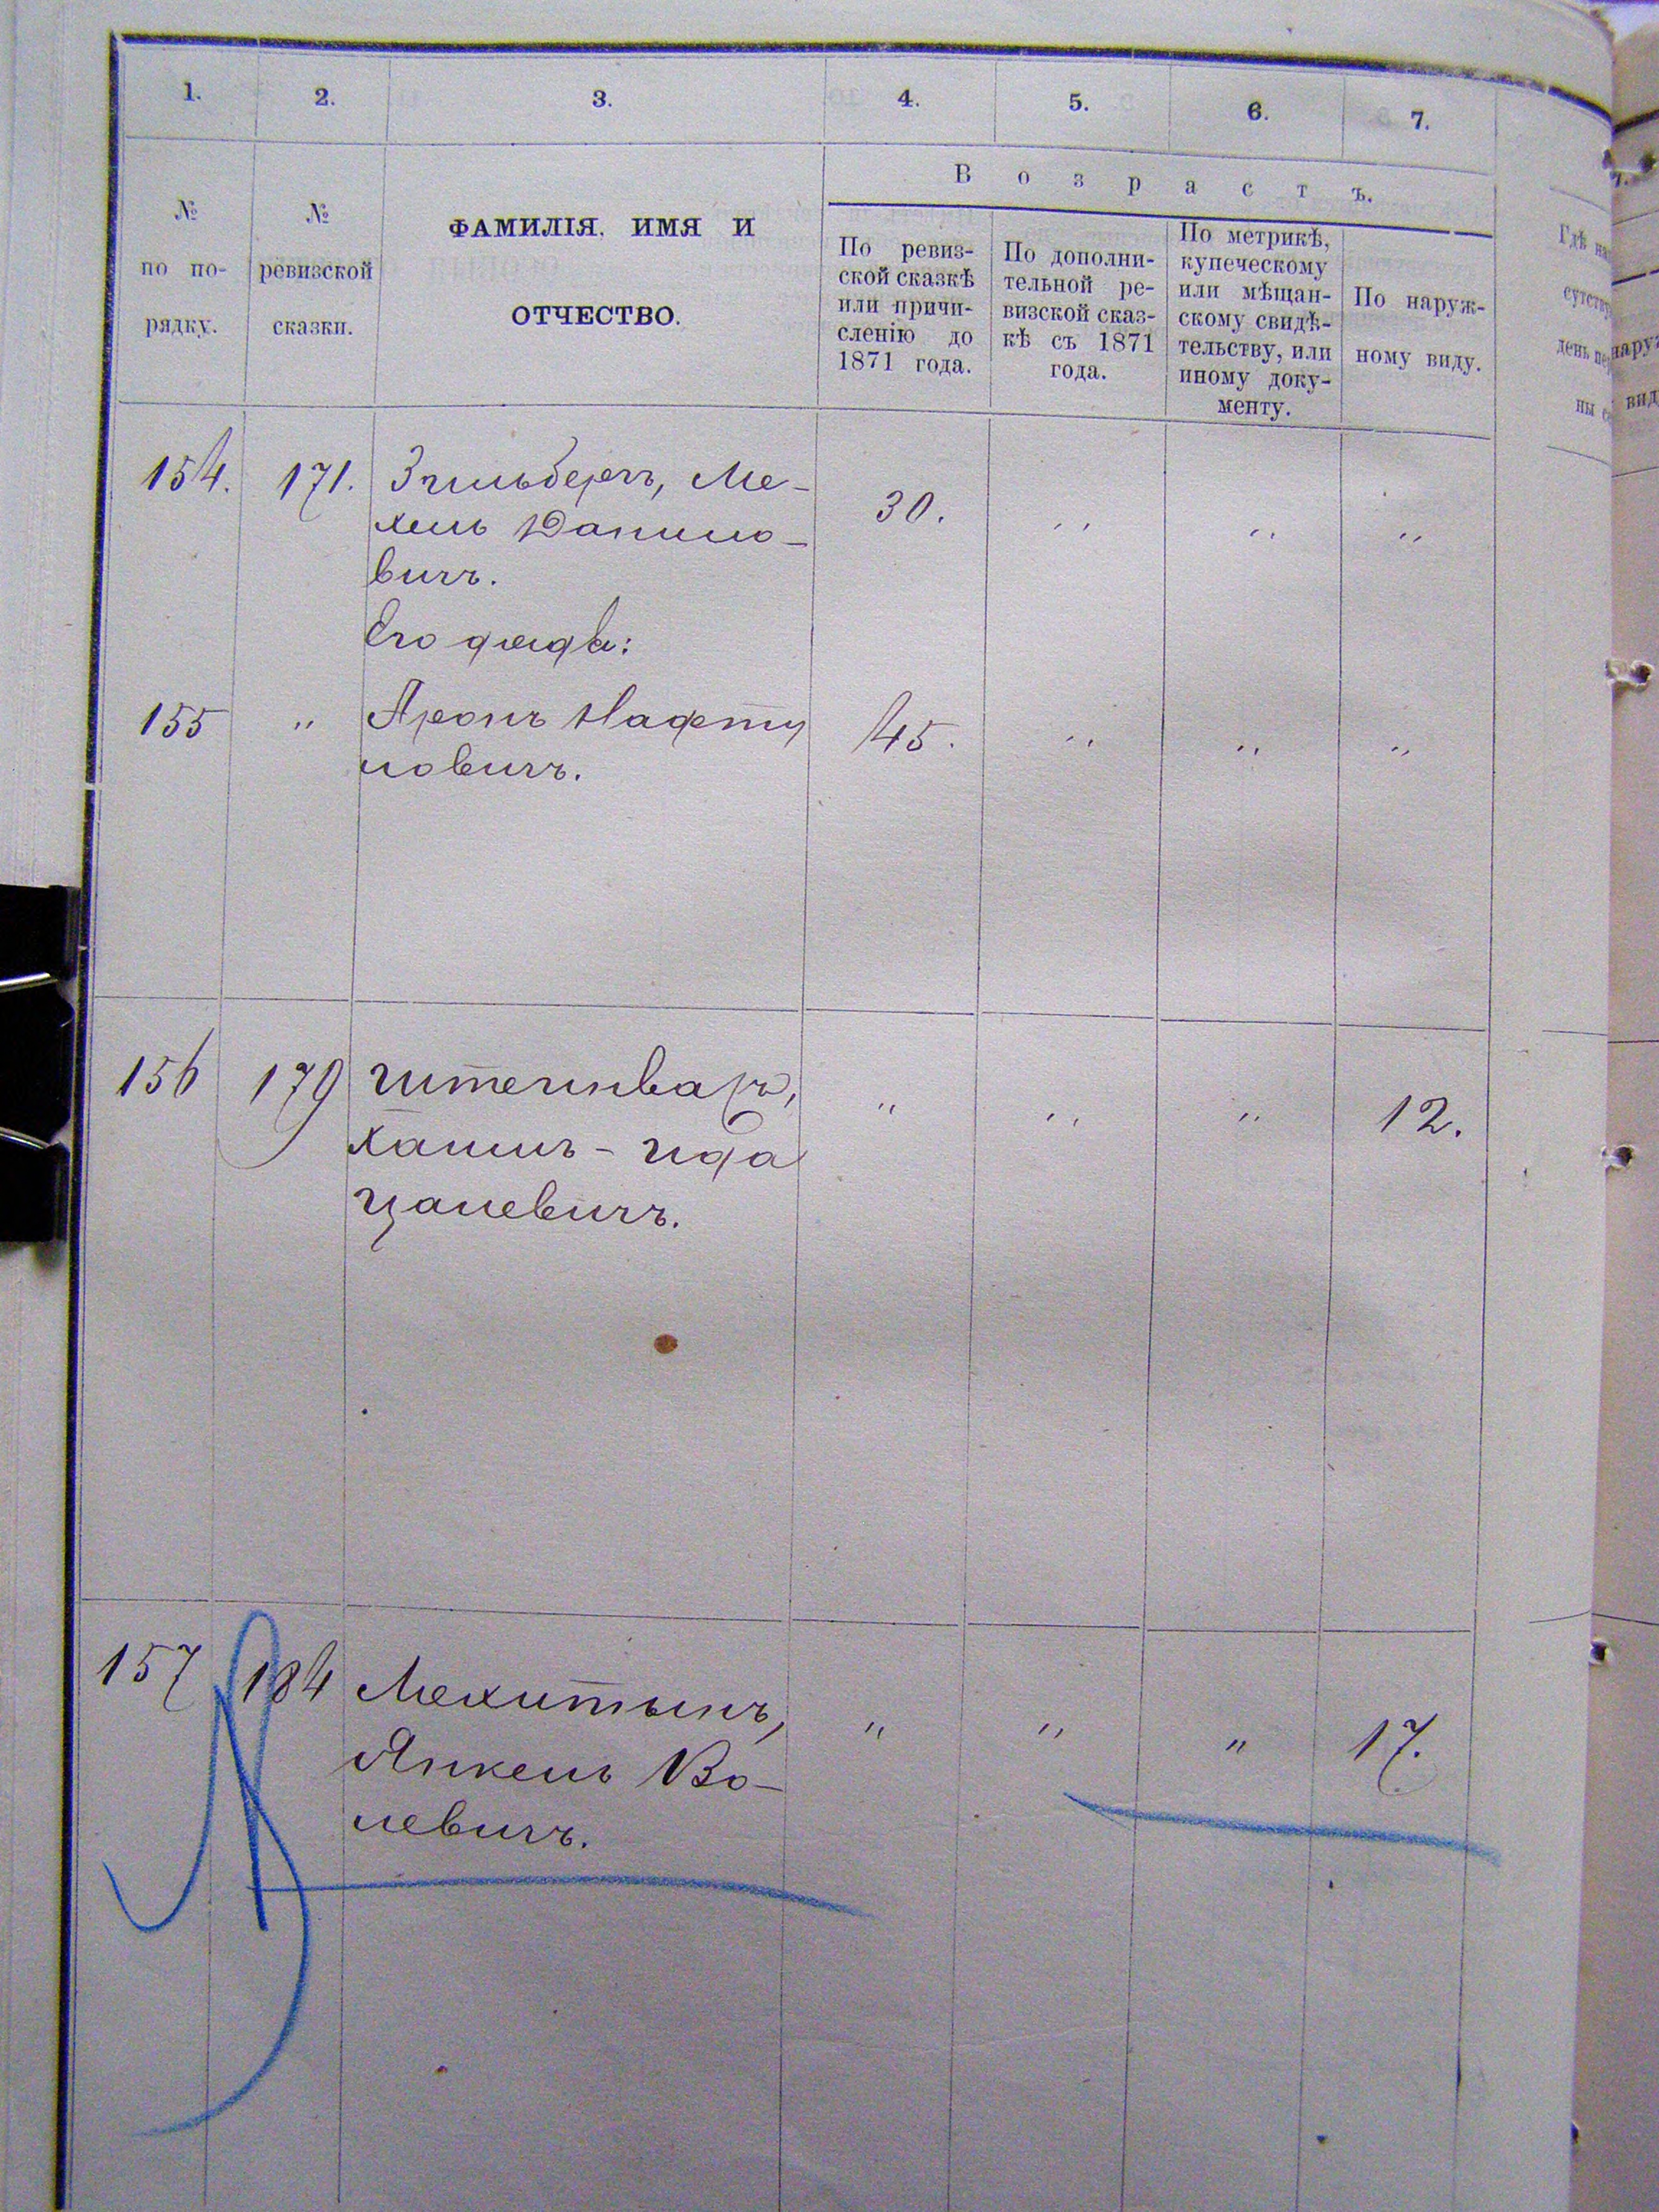 1. 2. 3. 4. 5. 6. 7.
№
по по-
рядку.
№
ревизской
сказки.
ФАМИЛІЯ, ИМЯ И
ОТЧЕСТВО.
Возрастъ.
По ревиз-
ской сказкѣ
или причи-
сленію до
1871 года.
По дополни-
тельной ре-
визской сказ-
кѣ съ 1871
года.
По метрикѣ,
купеческому
или мѣщан-
скому свидѣ-
тельству, или
иному доку-
менту.
По наруж-
ному виду.
154. 171. Зильбергъ, Ме- 30. " " "
хель Данило-
вичъ.
Его дядя:
155 " Аронъ Нафту 45. " " "
ловичъ.
156 179 Штеинварц, " " " 12.
Хаимъ-Ида
Цалевичъ.
157 184 Мехитынъ, " " " 17.
Янкель Во-
левичъ.
Гдѣ
день
ны